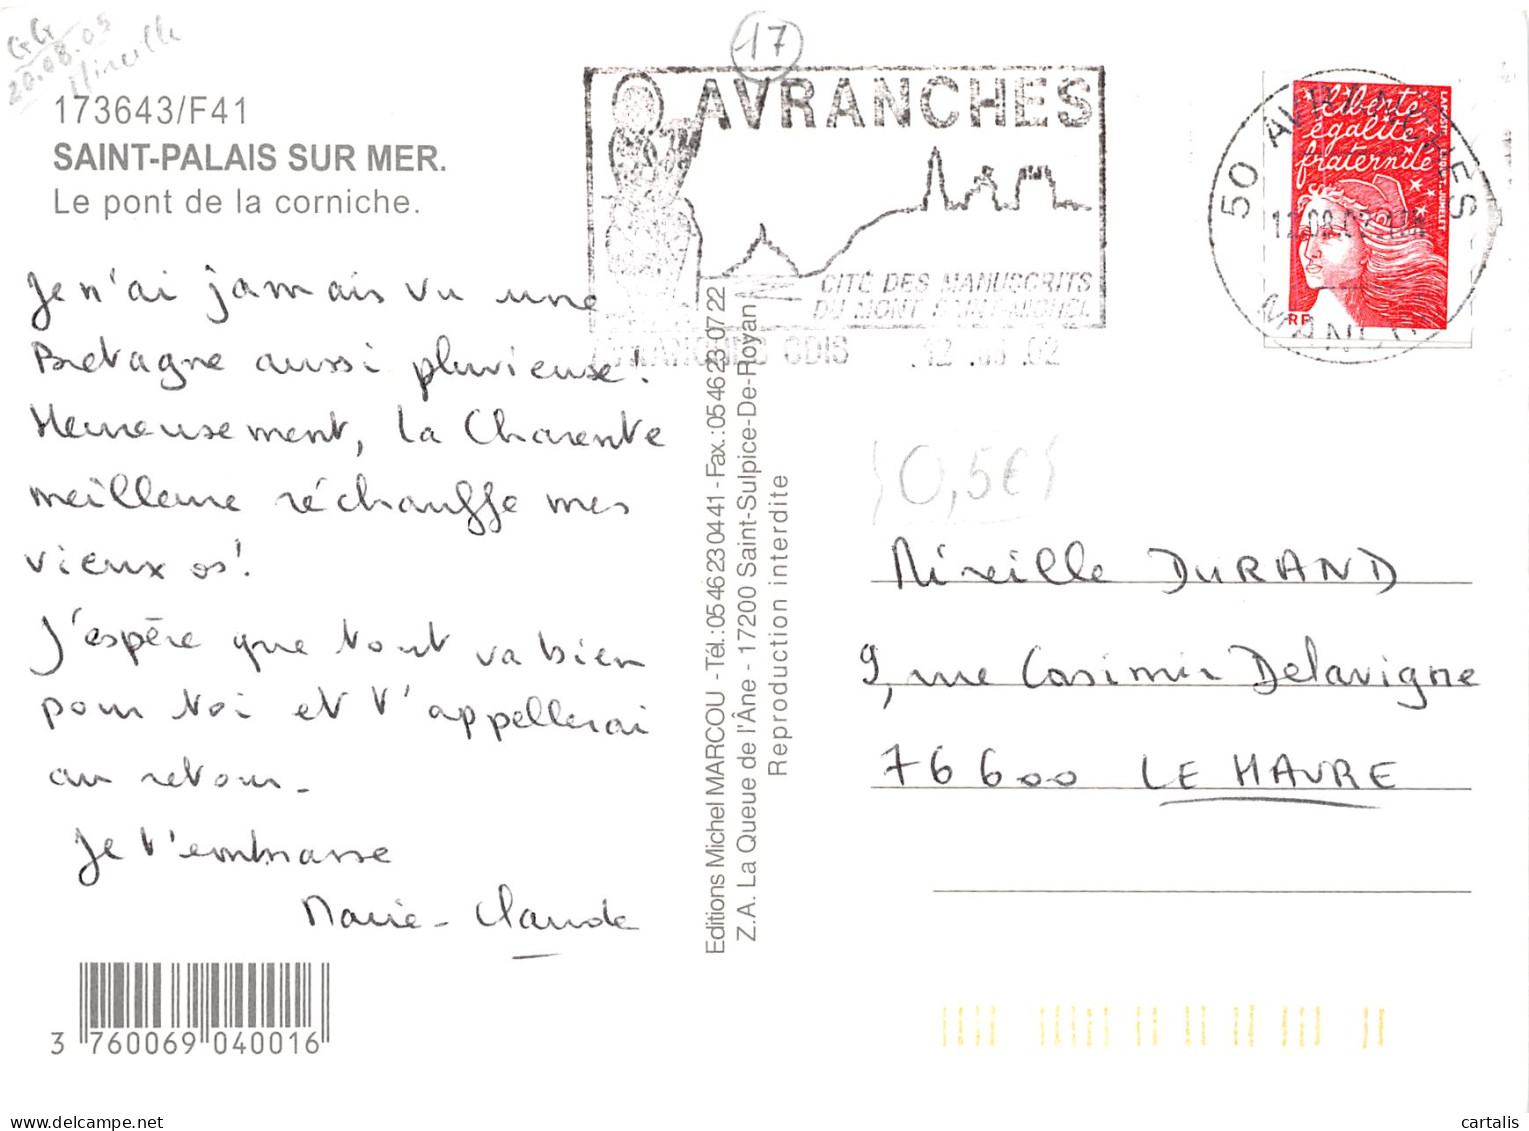 GG
20.08.05
Mireille
17
173643/F41
SAINT-PALAIS SUR MER.
Le pont de la corniche.
Je n'ai jamais vu une
Bretagne aussi pluvieuse !
Heureusement, la Charente
meilleure réchauffe mes
vieux os !
J'espère que tout va bien
pour toi et t'appellerai
au retour.
Je t'embrasse
Marie-Claude
3 760069 040016
Editions Michel MARCOU - Tél.: 05 46 23 04 41 - Fax.: 05 46 23 07 22
Z.A. La Queue de l'Âne - 17200 Saint-Sulpice-De-Royan
Reproduction interdite
AVRANCHES
CITÉ DES MANUSCRITS
DU MONT SAINT-MICHEL
AVRANCHES CDIS 12.08.02
50 AVRANCHES
MANCHE
liberté
égalité
fraternité
RF
0,5€
Mireille DURAND
9, rue Casimir Delavigne
76600 LE HAVRE
cartalis